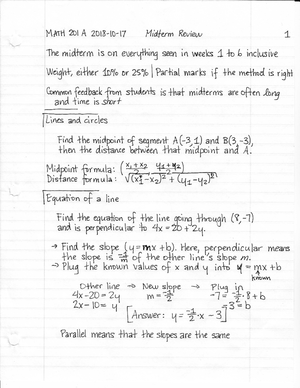 MATH 201 A 2018-10-17 Midterm Review 1
The midterm is on everything seen in weeks 1 to 6 inclusive
Weight, either 10% or 25% | Partial marks if the method is right
Common feedback from students is that midterms are often long
and time is short
Lines and circles
Find the midpoint of segment A(-3,1) and B(3,-3),
then the distance between that midpoint and A.
Midpoint formula: (x₁+x₂/2, y₁+y₂/2)
Distance formula: √(x₁-x₂)²+(y₁-y₂)²
Equation of a line
Find the equation of the line going through (8,-7)
and is perpendicular to 4x=20+2y.
→ Find the slope (y=mx+b). Here, perpendicular means
the slope is -1/m of the other line's slope m.
→ Plug the known values of x and y into y=mx+b
known
Other line → New slope → Plug in
4x-20=2y m=-1/2 -7=-1/2·8+b
2x-10=y -3=b
[Answer: y=-1/2·x-3]
Parallel means that the slopes are the same